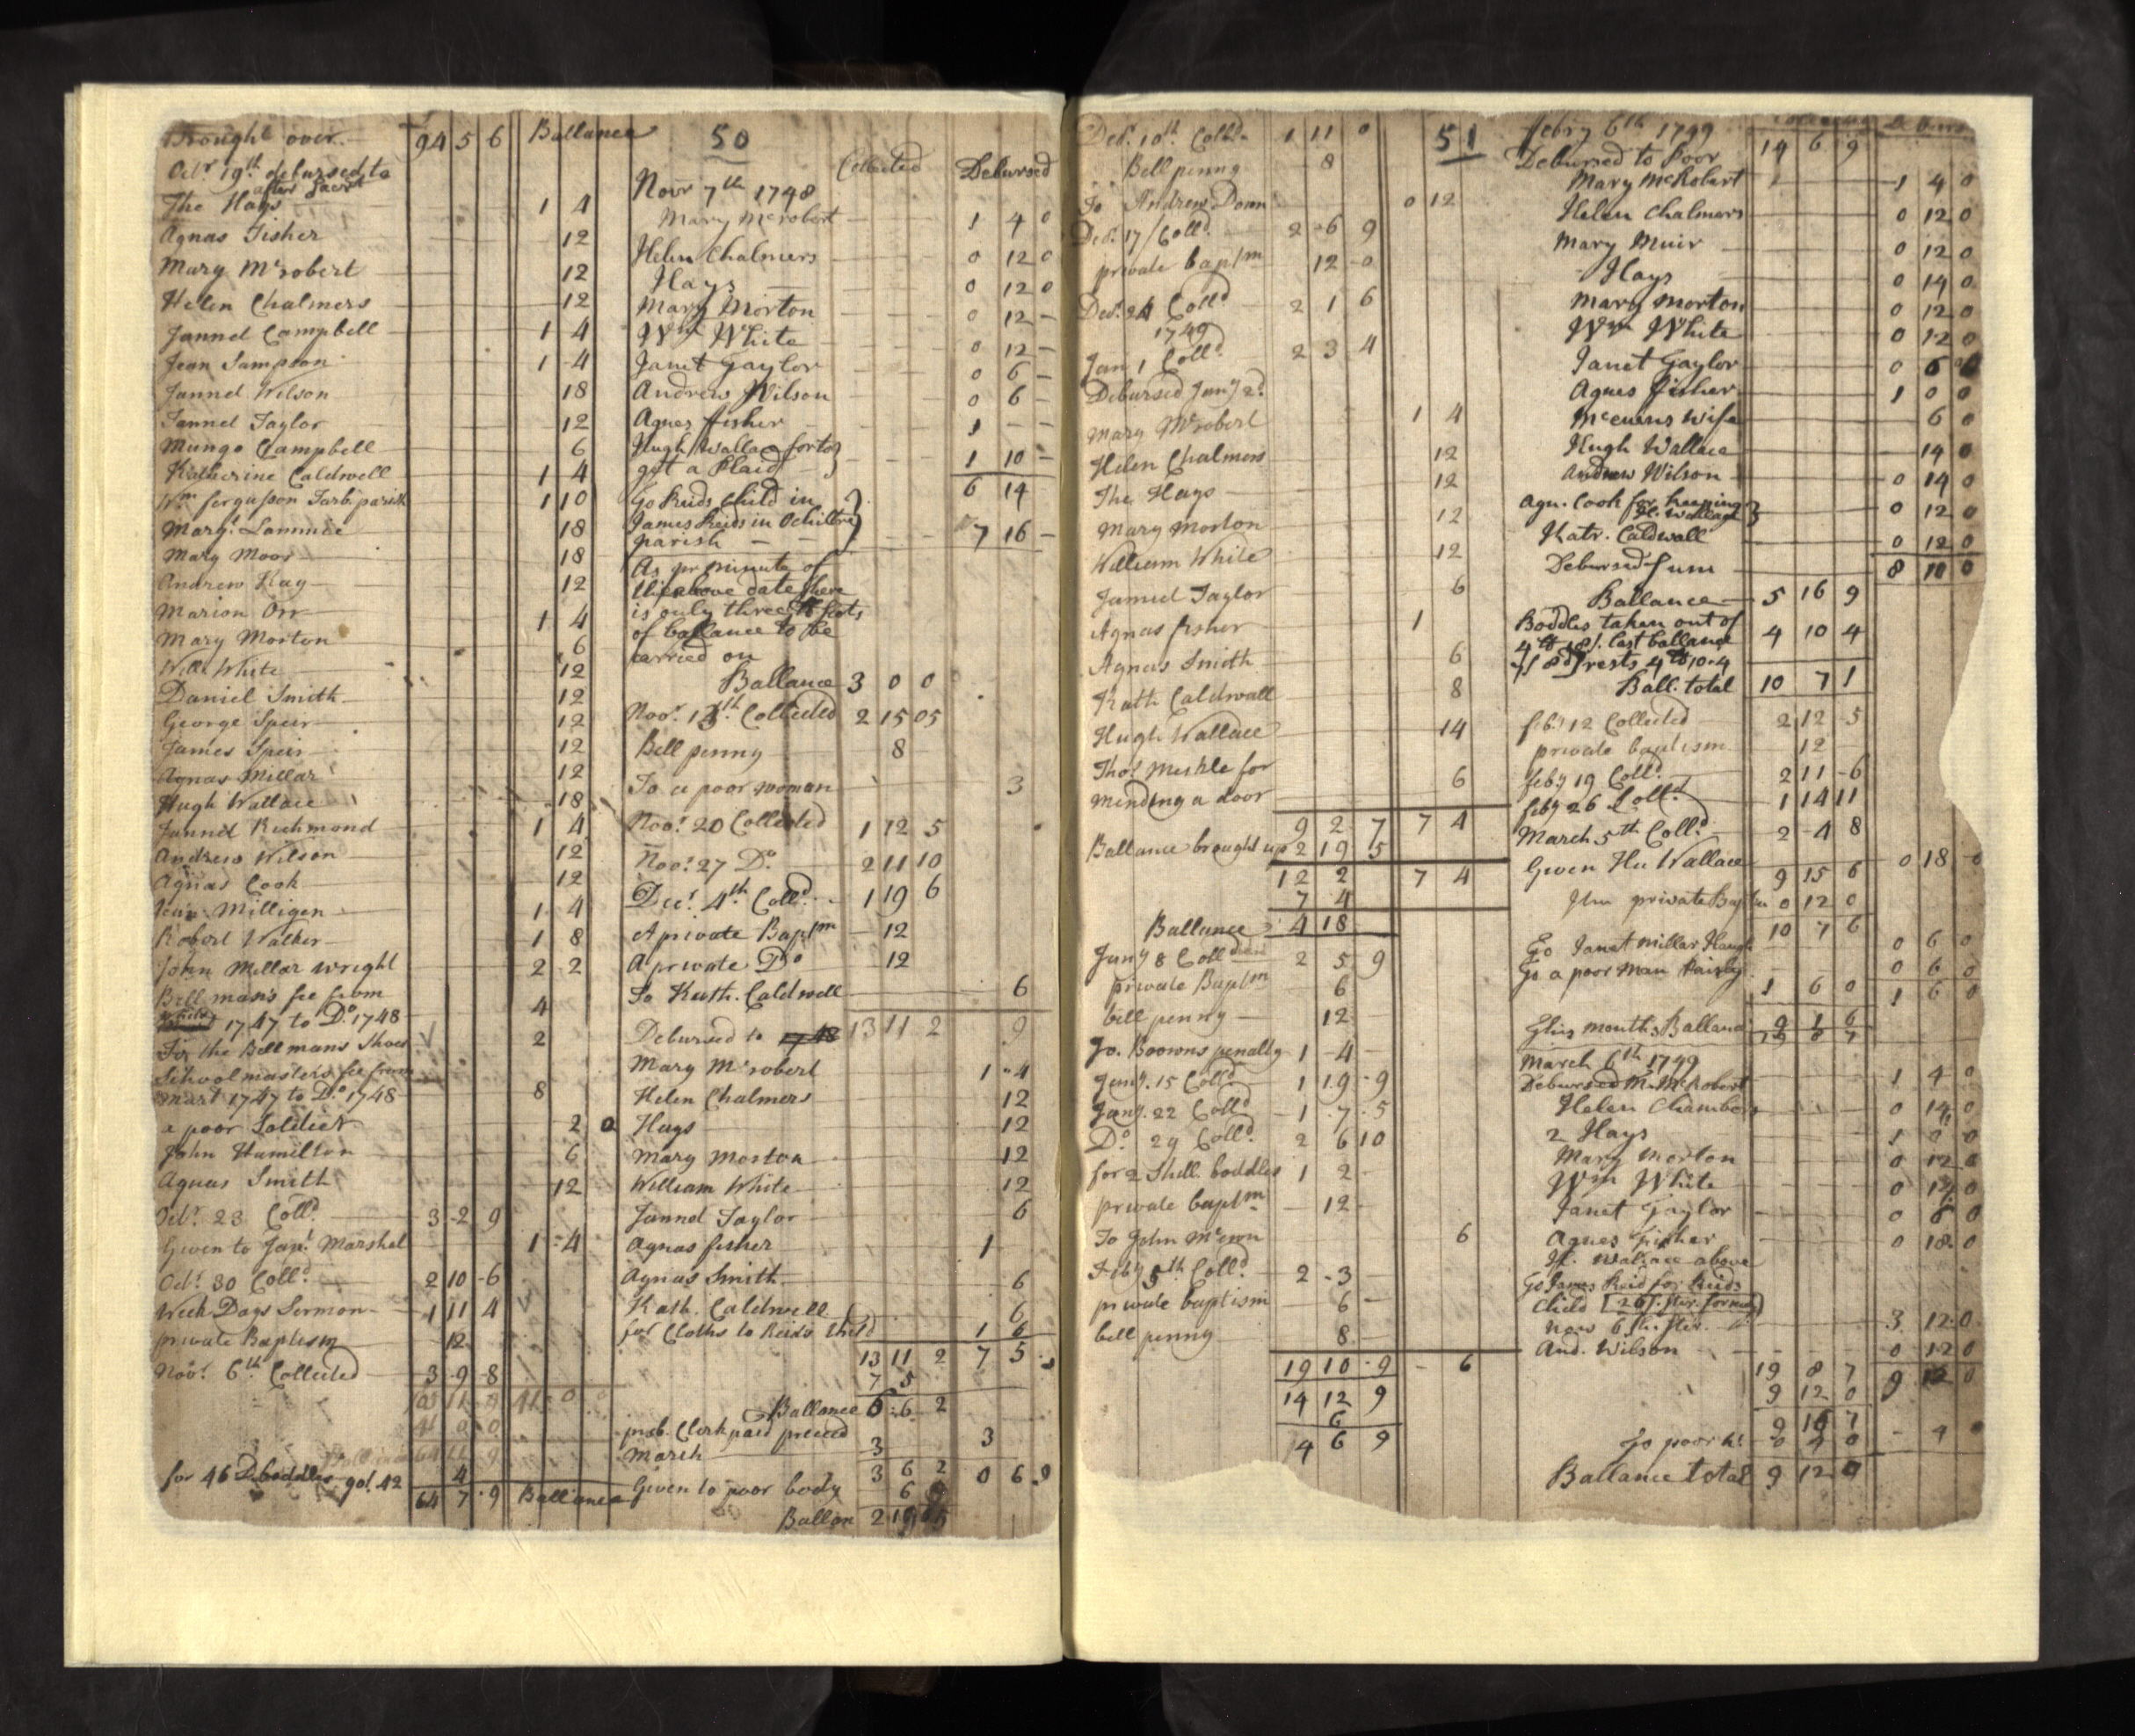 Brought over 94 5 6 Ballance
Octr 19th debursed to
after Sacrt
The Hays 1 4
Agnas Fisher 12
Mary Mcrobert 12
Helen Chalmers 12
Jannel Campbell 1 4
Jean Sampson 1 4
Jannel Wilson 18
Jannel Taylor 12
Mungo Campbell 6
Katherine Caldwell 1 4
Wm fergusson Tarb: parish 1 10
Margt Lammie 18
Mary Moor 18
Andrew Hay 12
Marion Orr 1 4
Mary Morton 6
Will White 12
Daniel Smith 12
George Speir 12
James Speir 12
Agnas Millar 12
Hugh Wallace 18
Jannel Richmond 1 4
Andrew Wilson 12
Agnas Cook 12
Jean Milligen 1 4
Robert Walker 1 8
John Millar wright 2 2
Bell man's fee from
1747 to Do 1748 4
For the Bell mans Shoes 2
School masters fee from
Mart 1747 to Do 1748 8
a poor Soldier 2 0
John Hamilton 6
Agnas Smith 12
Octr 23 Colld 3 2 9
Given to Jant Marshel 1 4
Octr 30 Colld 2 10 6
Week Days Sermon 1 11 4
private Baptism 12
Novr 6th Collected 3 9 8
41 0 0
for 46 D boddles got 42 4
64 7 9 Ballance
50
Collected Debursed
Novr 7th 1748
Mary Mcrobert 1 4 0
Helen Chalmers 0 12 0
Hays 0 12 0
Mary Morton 0 12 -
Wm White 0 12 -
Janet Taylor 0 6 -
Andrew Wilson 0 6 -
Agnes fisher 1 - -
Hugh Wallace for to
get a Plaid 1 10 -
6 14
To Reids Child in
James Reids in Ochiltree
parish 7 16 -
As pr minute of
the above date there
is only three lb Scots
of ballance to be
carried on
Ballance 3 0 0
Novr 13th Collected 2 15 05
Bell penny 8
To a poor woman 3
Novr 20 Collected 1 12 5
Novr 27 Do 2 11 10
Decr 4th Colld 1 19 6
A private Baptm 12
A private Do 12
To Kath. Caldwell 6
Debursed to 13 11 2 9
Mary Mcrobert 1 4
Helen Chalmers 12
Hays 12
Mary Morton 12
William White 12
Jannel Taylor 6
Agnas fisher 1
Agnas Smith 6
Kath. Caldwell 6
for Cloths to Reids Child 1 6
13 11 2 7 5
7 5
Ballance 6 6 2
presb. Clerk paid preceed 3
March 3
3 6 2 0 6 9
Given to poor body 6 9
Ballan 2 19 5
Decr 10th Colld 1 11 0
Bell penny 8
To Andrew Donn 0 12
Decr 17 Colld 2 6 9
private baptm 12 0
Decr 24 Colld 2 1 6
1749
Jany 1 Colld 2 3 4
Debursed Jany 2d
Mary Mcrobert 1 4
Helen Chalmers 12
The Hays 12
Mary Morton 12
William White 12
Jannel Taylor 6
Agnas fisher 1
Agnas Smith 6
Kath Caldwall 8
Hugh Wallace 14
Thos Meikle for
mending a door 6
9 2 7 7 4
Ballance brought up 2 19 5
12 2 7 4
7 4
Ballance 4 18
Jany 8 Colld 2 5 9
private Baptm 6
bell penny 12
Jo. Boowns penalty 1 4
Jany 15 Colld 1 19 9
Jany 22 Colld 1 7 5
Do 29 Colld 2 6 10
for 2 Shill. boddles 1 2
private baptm 12
To John Mcewn 6
Feby 5th Colld 2 3
private baptism 6
bell penny 8
19 10 9 - 6
14 12 9
6
4 6 9
51
febry 6th 1749 14 6 9
Debursed to Poor
Mary McRobert 1 4 0
Helen Chalmers 0 12 0
Mary Muir 0 12 0
Hays 0 14 0
Mary Morton 0 12 0
Wm White 0 12 0
Janet Taylor 0 6 0
Agnes fisher 1 0 0
Mcewens wife 6 0
Hugh Wallace 14 0
Andrew Wilson 0 14 0
Agn. Cook for keeping
H. Wallace 0 12 0
Katr. Caldwall 0 12 0
Debursed Sum 8 10 0
Ballance 5 16 9
Boddles taken out of
4 lb 18/. last ballance 4 10 4
rests 4 lb 10 4
Ball. total 10 7 1
feby 12 Collected 2 12 5
private baptism 12
feby 19 Colld 2 11 6
feby 26 Colld 1 14 11
March 5th Colld 2 4 8
Given Hu Wallace 0 18 0
9 15 6
Item private Baptm 0 12 0
10 7 6
To Janet Millar Haugh 0 6 0
To a poor Man Paisley 0 6 0
1 6 0 1 6 0
This months Ballance 9 1 6
19 8 7
March 6th 1749
Debursed M. McRobert 1 4 0
Helen Chambers 0 14 0
2 Hays 1 0 0
Mary Morton 0 12 0
Wm White 0 12 0
Janet Taylor 0 6 0
Agnes fisher 0 18 0
H. Wallace above
To James Reid for Reids
Child [26/. ster. formerly]
now 6 sh. ster. 3 12 0
And. Wilson 0 12 0
19 8 7
9 12 0 9 12 0
9 16 7
To poor 4 0
Ballance total 9 12